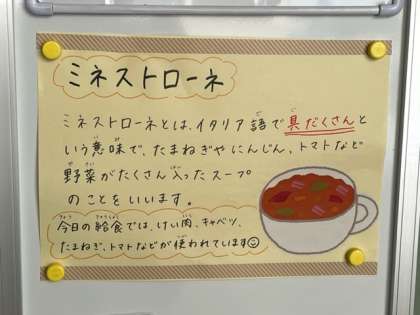 ミネストローネ
ミネストローネとは、イタリア語で具だくさんと
いう意味で、たまねぎやにんじん、トマトなど
野菜がたくさん入ったスープ
のことをいいます。
今日の給食では、けい肉、キャベツ、
たまねぎ、トマトなどが使われています